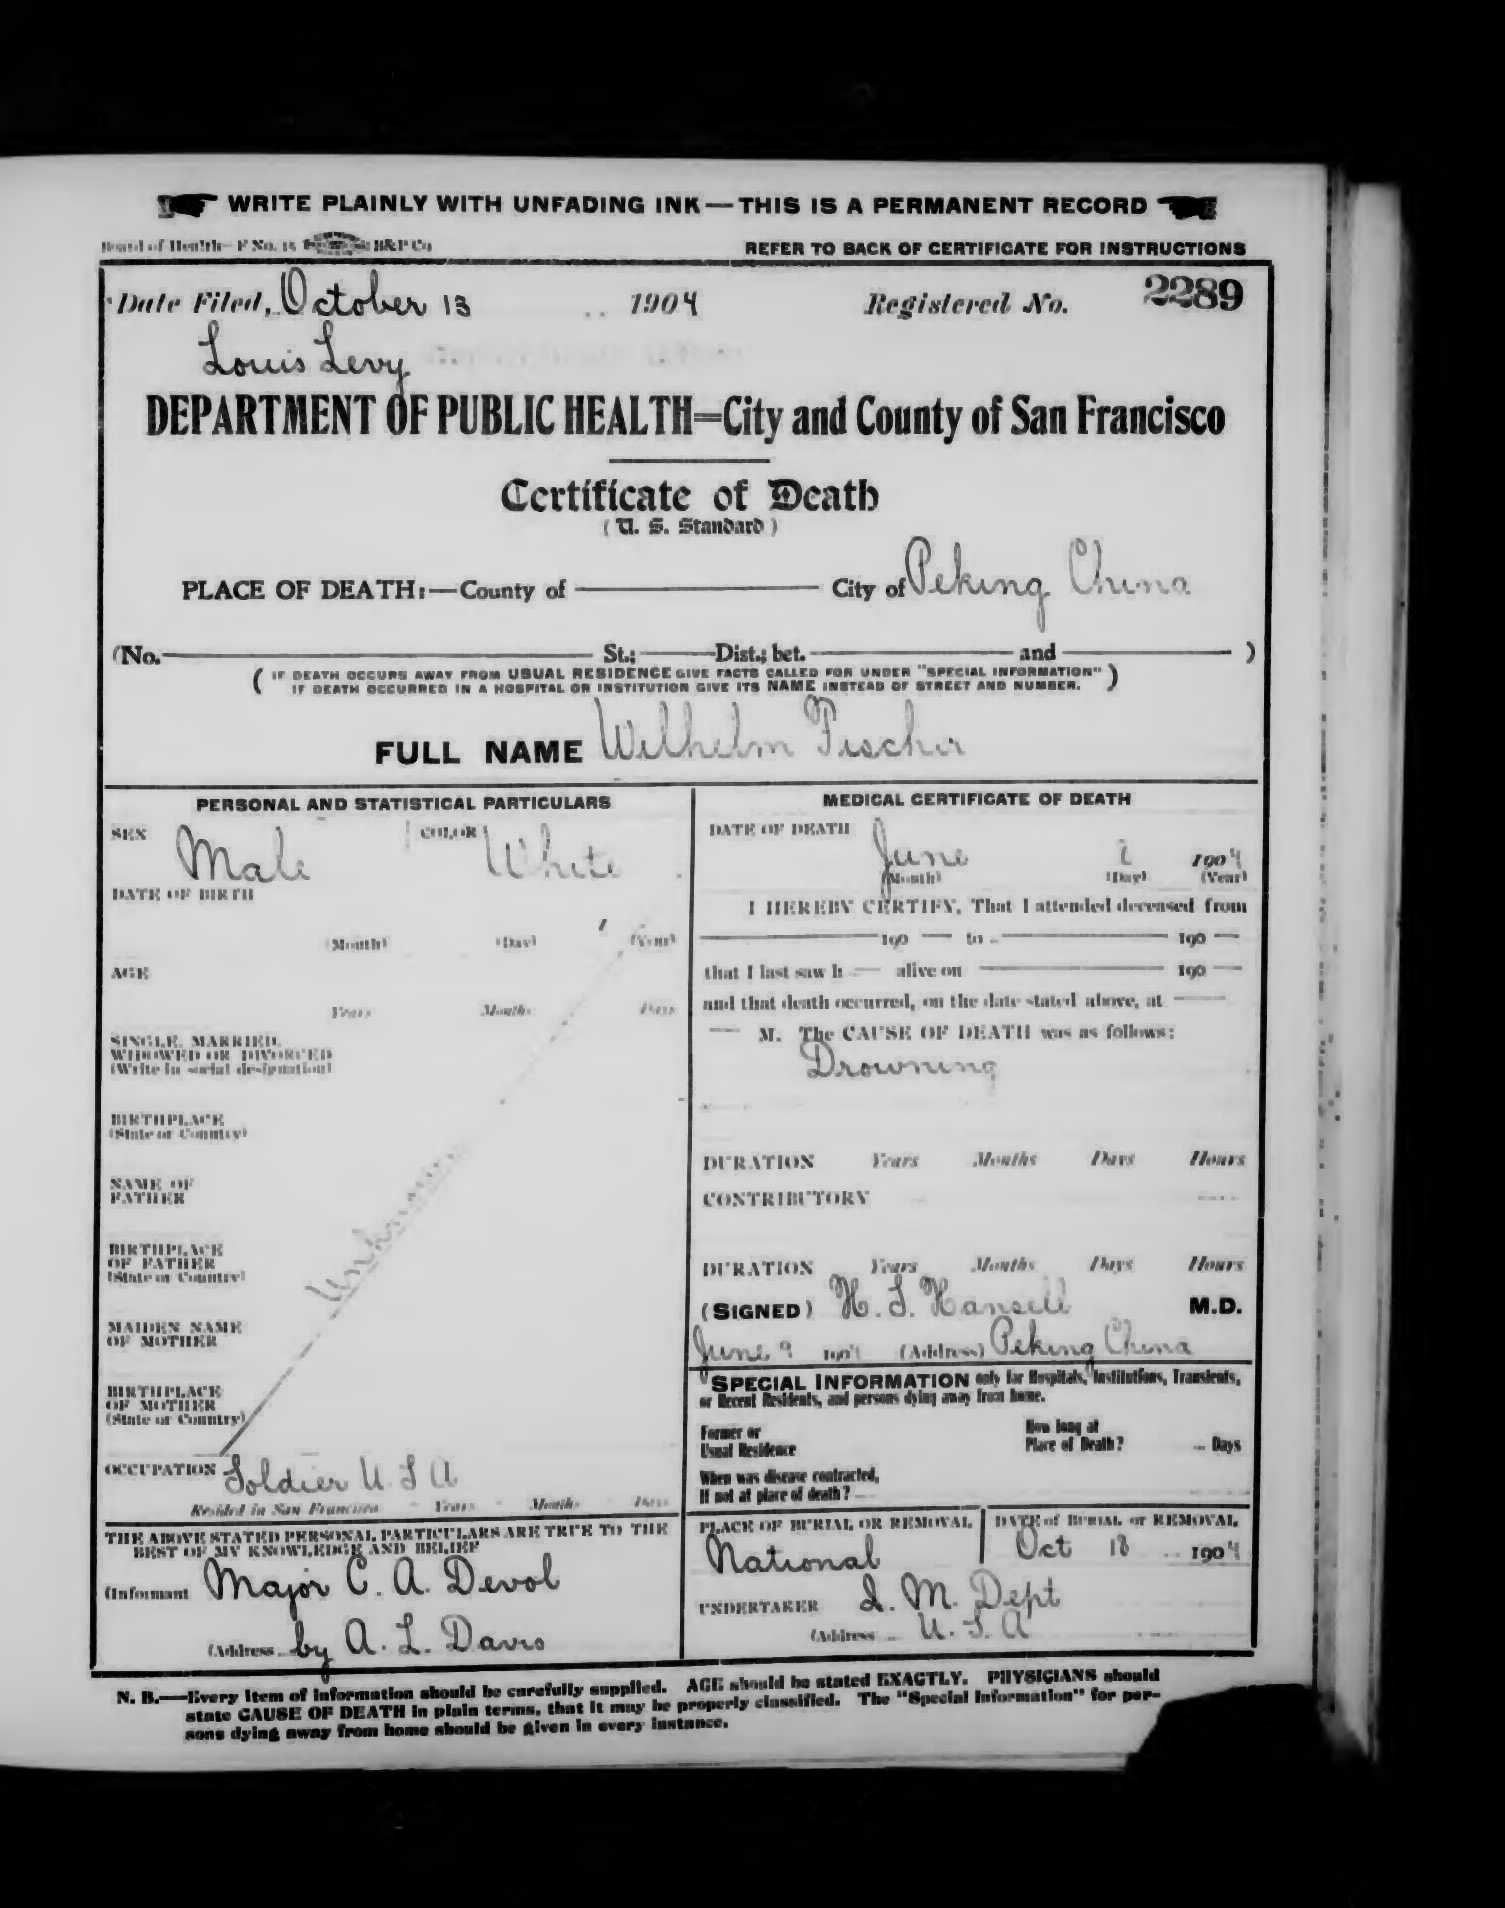 WRITE PLAINLY WITH UNFADING INK—THIS IS A PERMANENT RECORD
Board of Health—F No. 15 B&P Co
REFER TO BACK OF CERTIFICATE FOR INSTRUCTIONS
Date Filed, October 13 1904 Registered No. 2289
Louis Levy
DEPARTMENT OF PUBLIC HEALTH=City and County of San Francisco
Certificate of Death
(U. S. Standard)
PLACE OF DEATH:—County of City of Peking China
(No. St.; Dist.; bet. and )
(IF DEATH OCCURS AWAY FROM USUAL RESIDENCE GIVE FACTS CALLED FOR UNDER "SPECIAL INFORMATION"
IF DEATH OCCURRED IN A HOSPITAL OR INSTITUTION GIVE ITS NAME INSTEAD OF STREET AND NUMBER.)
FULL NAME Wilhelm Fischer
PERSONAL AND STATISTICAL PARTICULARS
SEX Male COLOR White
DATE OF BIRTH
(Month) (Day) (Year)
AGE
Years Months Days
SINGLE, MARRIED,
WIDOWED OR DIVORCED
(Write in social designation)
BIRTHPLACE
(State or Country)
NAME OF
FATHER
Unknown
BIRTHPLACE
OF FATHER
(State or Country)
MAIDEN NAME
OF MOTHER
BIRTHPLACE
OF MOTHER
(State or Country)
OCCUPATION Soldier U S A
Resided in San Francisco Years Months Days
THE ABOVE STATED PERSONAL PARTICULARS ARE TRUE TO THE
BEST OF MY KNOWLEDGE AND BELIEF
(Informant Major C. A. Devol
(Address by A. L. Davis
MEDICAL CERTIFICATE OF DEATH
DATE OF DEATH
June 1904
(Month) (Day) (Year)
I HEREBY CERTIFY, That I attended deceased from
190 to 190
that I last saw h alive on 190
and that death occurred, on the date stated above, at
M. The CAUSE OF DEATH was as follows:
Drowning
DURATION Years Months Days Hours
CONTRIBUTORY
DURATION Years Months Days Hours
(SIGNED) H. S. Hansell M.D.
June 9 1904 (Address) Peking China
SPECIAL INFORMATION only for Hospitals, Institutions, Transients,
or Recent Residents, and persons dying away from home.
Former or
Usual Residence
How long at
Place of Death? Days
When was disease contracted,
If not at place of death?
PLACE OF BURIAL OR REMOVAL
National
DATE of BURIAL or REMOVAL
Oct 18 1904
UNDERTAKER Q. M. Dept
(Address U. S. A
N. B.—Every item of information should be carefully supplied. AGE should be stated EXACTLY. PHYSICIANS should
state CAUSE OF DEATH in plain terms, that it may be properly classified. The "Special Information" for per-
sons dying away from home should be given in every instance.